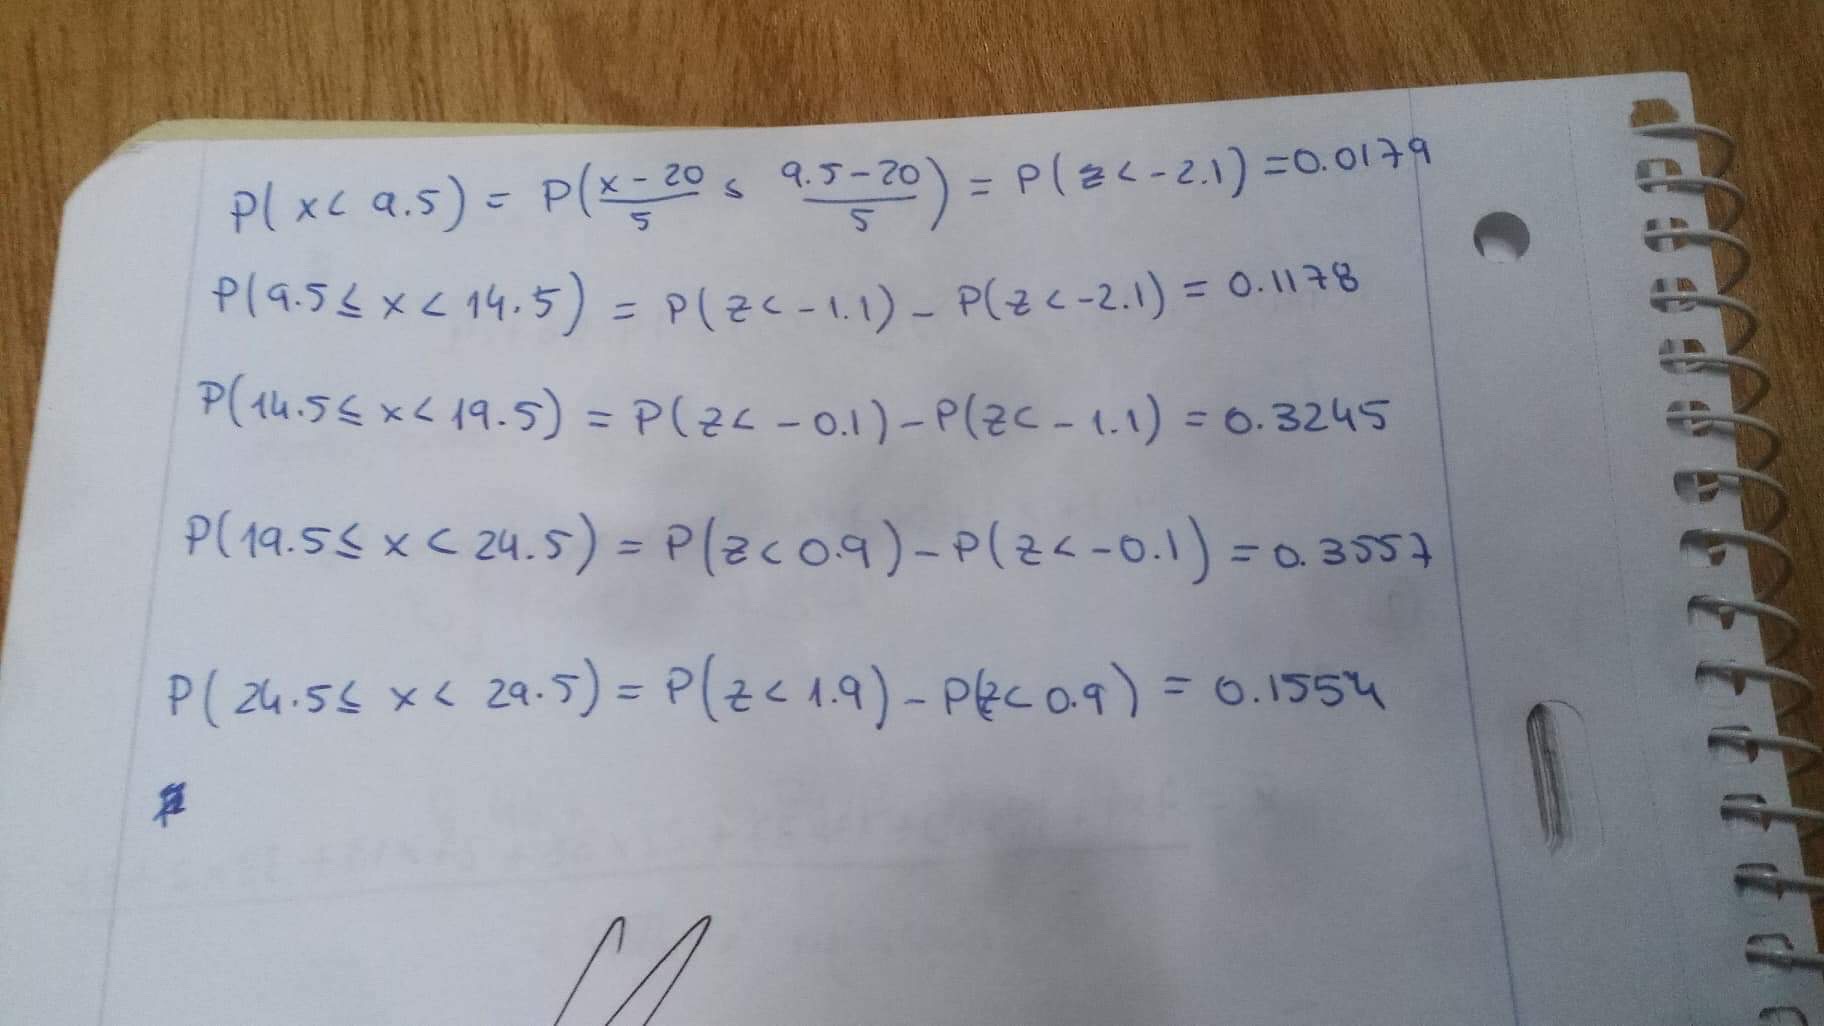 P(x < 9.5) = P(x - 20/5 ≤ 9.5 - 20/5) = P(z < -2.1) = 0.0179
P(9.5 ≤ x < 14.5) = P(z < -1.1) - P(z < -2.1) = 0.1178
P(14.5 ≤ x < 19.5) = P(z < -0.1) - P(z < -1.1) = 0.3245
P(19.5 ≤ x < 24.5) = P(z < 0.9) - P(z < -0.1) = 0.3557
P(24.5 ≤ x < 29.5) = P(z < 1.9) - P(z < 0.9) = 0.1554